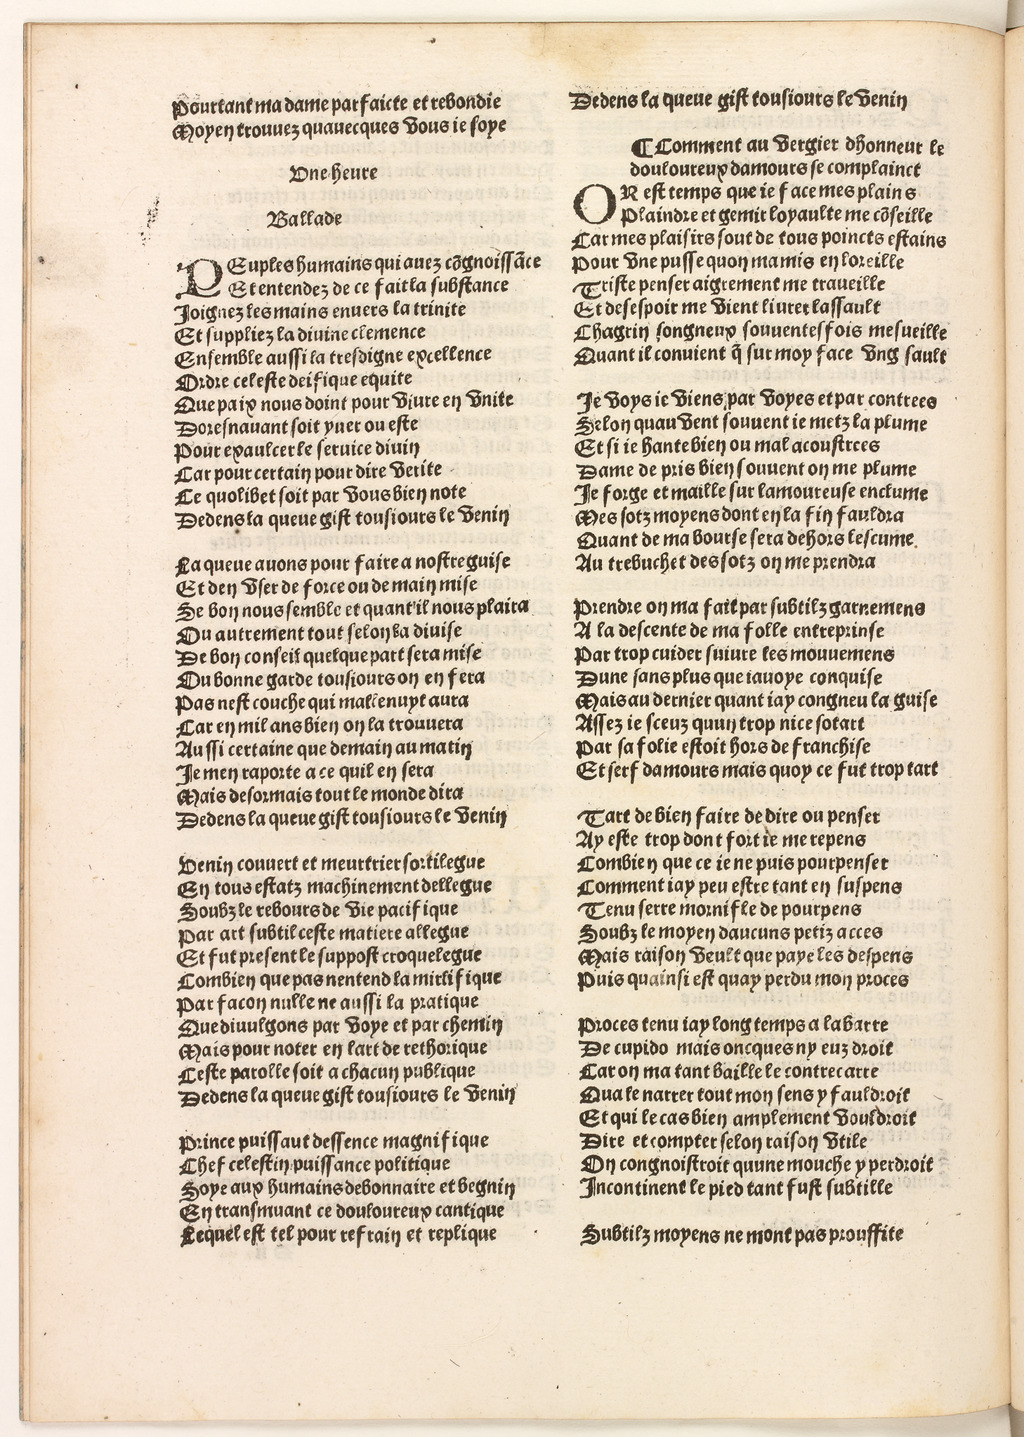 Pourtant ma dame parfaicte et rebondie
Moyen trouuez quauecques vous ie soye
Vne heure
Ballade
PEuples humains qui auez cōgnoissāce
Et entendez de ce fait la substance
Joignez les mains enuers la trinite
Et suppliez la diuine clemence
Ensemble aussi la tresdigne excellence
Ordre celeste deifique equite
Que paix nous doint pour viure en vnite
Doresnauant soit yuer ou este
Pour exaulcer le seruice diuin
Car pour certain pour dire verite
Ce quolibet soit par vous bien note
Dedens la queue gist tousiours le venin
La queue auons pour faire a nostre guise
Et den vser de force ou de main mise
Se bon nous semble et quant il nous plaira
Ou autrement tout selon sa diuise
De bon conseil quelque part sera mise
Ou bonne garde tousiours on en fera
Pas nest couche qui mallenuyt aura
Car en mil ans bien on la trouuera
Aussi certaine que demain au matin
Je men raporte a ce quil en sera
Mais desormais tout le monde dira
Dedens la queue gist tousiours le venin
Venin couuert et meurtrier sortilegue
En tous estatz machinement dellegue
Soubz le rebours de vie pacifique
Par art subtil ceste matiere allegue
Et fut present le suppost croquelegue
Combien que pas nentend la mirlifique
Par facon nulle ne aussi la pratique
Que diuulgons par voye et par chemin
Mais pour noter en lart de rethorique
Ceste parolle soit a chacun publique
Dedens la queue gist tousiours le venin
Prince puissant dessence magnifique
Chef celestin puissance politique
Soye aux humains debonnaire et begnin
En transmuant ce douloureux cantique
Lequel est tel pour refrain et replique
Dedens la queue gist tousiours le venin
¶ Comment au vergier dhonneur le
douloureux damours se complainct
OR est temps que ie face mes plains
Plaindre et gemir loyaulte me cōseille
Car mes plaisirs sont de tous poincts estains
Pour vne pusse quon ma mis en loreille
Triste penser aigrement me traueille
Et desespoir me vient liurer lassault
Chagrin songneux souuentesfois mesueille
Quant il conuient q̄ sur moy face vng sault
Je voys ie viens par voyes et par contrees
Selon quau vent souuent ie metz la plume
Et si ie hante bien ou mal acoustrees
Dame de pris bien souuent on me plume
Je forge et maille sur lamoureuse enclume
Mes sotz moyens dont en la fin fauldra
Quant de ma bourse sera dehors lescume.
Au trebuchet des sotz on me prendra
Prendre on ma fait par subtilz garnemens
A la descente de ma folle entreprinse
Par trop cuider suiure les mouuemens
Dune sans plus que iauoye conquise
Mais au dernier quant iay congneu la guise
Assez ie sceuz quun trop nice sotart
Par sa folie estoit hors de franchise
Et serf damours mais quoy ce fut trop tart
Tart de bien faire de dire ou penser
Ay este trop dont fort ie me repens
Combien que ce ie ne puis pourpenser
Comment iay peu estre tant en suspens
Tenu serre mornifle de pourpens
Soubz le moyen daucuns petiz acces
Mais raison veult que paye les despens
Puis quainsi est quay perdu mon proces
Proces tenu iay long temps a la barre
De cupido mais oncques ny euz droit
Car on ma tant baille le contrecarre
Qua le narrer tout mon sens y fauldroit
Et qui le cas bien amplement vouldroit
Dire et compter selon raison vtile
On congnoistroit quune mouche y perdroit
Incontinent le pied tant fust subtille
Subtilz moyens ne mont pas prouffite